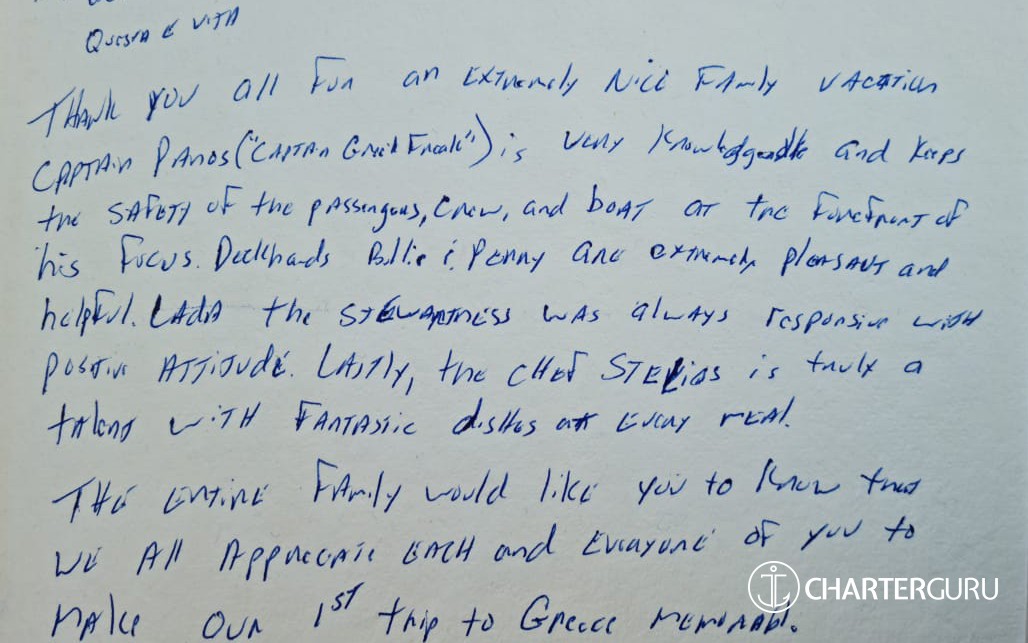 Questa è Vita
Thank you all for an extremely nice family vacation
Captain Panos ("Captain Greek Freak") is very knowledgeable and keeps
the safety of the passengers, crew, and boat at the forefront of
his focus. Deckhands Billie & Penny are extremely pleasant and
helpful. Lada the stewartness was always responsive with
positive attitude. Lastly, the chef Stelios is truly a
talent with fantastic dishes at every meal.
The entire family would like you to know that
we all appreciate each and everyone of you to
make our 1st trip to Greece memorabl.
CHARTERGURU